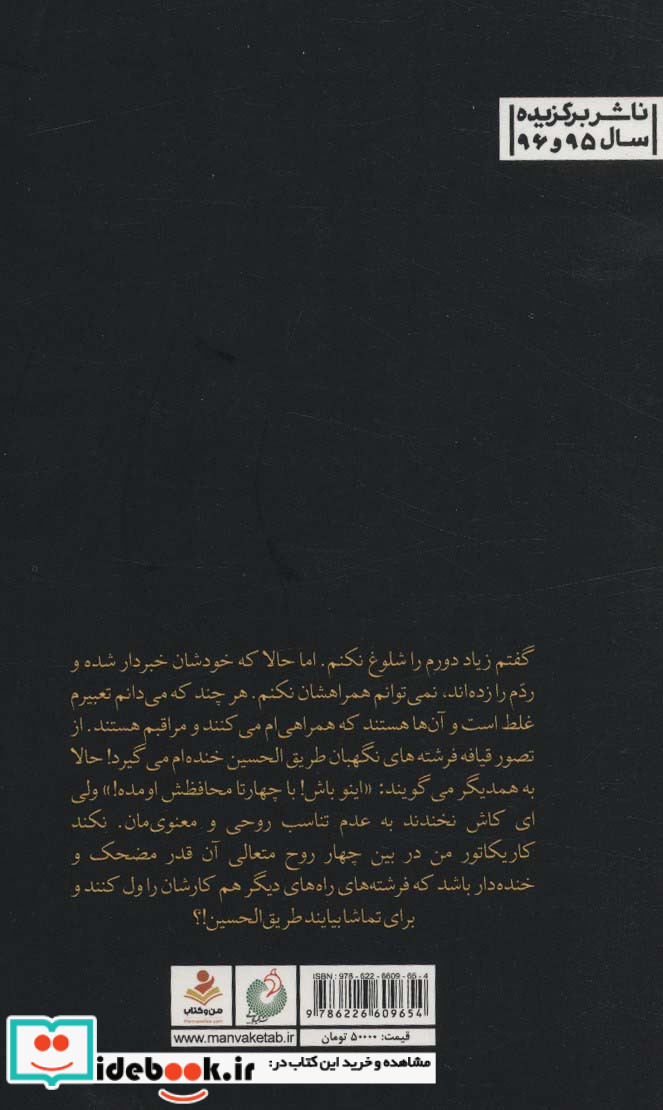 ناشر برگزیده
سال ۹۵ و ۹۶
گفتم زیاد دورم را شلوغ نکنم. اما حالا که خودشان خبردار شده و
ردّم را زده‌اند، نمی‌توانم همراهشان نکنم. هر چند که می‌دانم تعبیرم
غلط است و آن‌ها هستند که همراهی‌ام می‌کنند و مراقبم هستند. از
تصور قیافه فرشته‌های نگهبان طریق الحسین خنده‌ام می‌گیرد! حالا
به همدیگر می‌گویند: «اینو باش! با چهارتا محافظش اومده!» ولی
ای کاش نخندند به عدم تناسب روحی و معنوی‌مان. نکند
کاریکاتور من در بین چهار روح متعالی آن قدر مضحک و
خنده‌دار باشد که فرشته‌های راه‌های دیگر هم کارشان را ول کنند و
برای تماشا بیایند طریق الحسین!؟
ISBN: 978-622-6609-65-4
9 786226 609654
من و کتاب
www.manvaketab.ir
قیمت: ۵۰۰۰۰ تومان
مشاهده و خرید این کتاب در:
idebook.ir